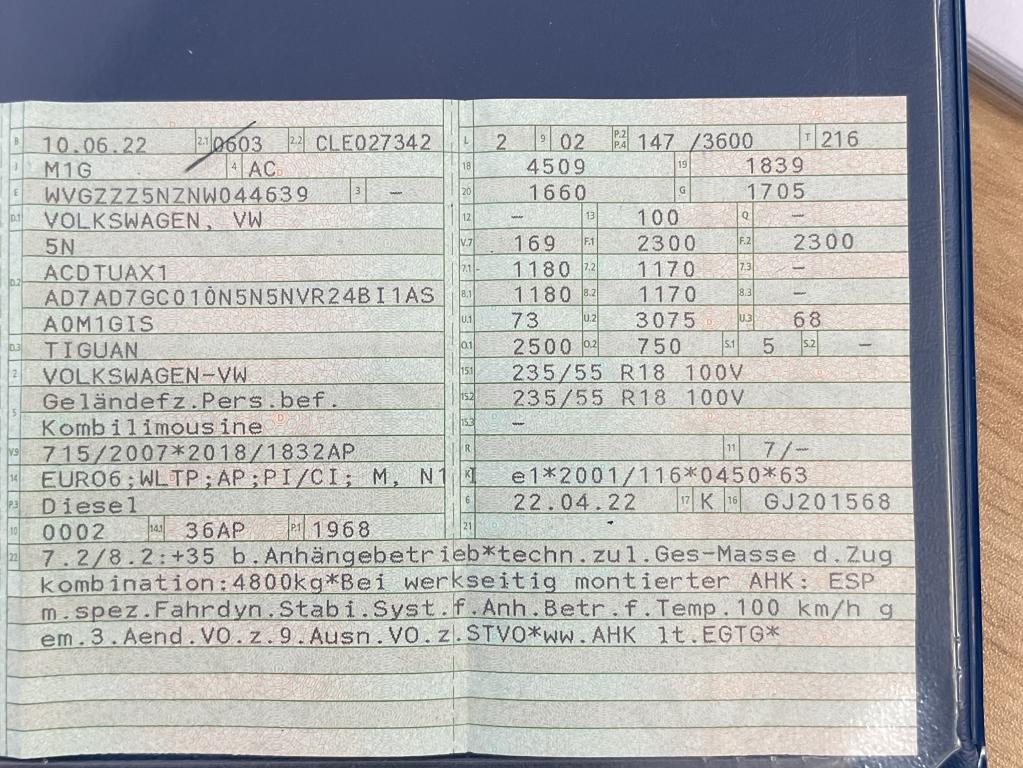 B 10.06.22 2.1 0603 2.2 CLE027342
J M1G 4 AC
E WVGZZZ5NZNW044639 3 —
D.1 VOLKSWAGEN, VW
5N
D.2 ACDTUAX1
AD7AD7GC010N5N5NVR24BI1AS
A0M1GIS
D.3 TIGUAN
2 VOLKSWAGEN-VW
5 Geländefz.Pers.bef.
Kombilimousine
V.9 715/2007*2018/1832AP
14 EURO6;WLTP;AP;PI/CI; M, N1 I
P.3 Diesel
10 0002 14.1 36AP P.1 1968
L 2 9 02 P.2 P.4 147 /3600 T 216
18 4509 19 1839
20 1660 G 1705
12 — 13 100 Q —
V.7 169 F.1 2300 F.2 2300
7.1 1180 7.2 1170 7.3 —
8.1 1180 8.2 1170 8.3 —
U.1 73 U.2 3075 U.3 68
O.1 2500 O.2 750 S.1 5 S.2 —
15.1 235/55 R18 100V
15.2 235/55 R18 100V
15.3 —
R 11 7/—
K e1*2001/116*0450*63
6 22.04.22 17 K 16 GJ201568
21
22 7.2/8.2:+35 b.Anhängebetrieb*techn.zul.Ges-Masse d.Zug
kombination:4800kg*Bei werkseitig montierter AHK: ESP
m.spez.Fahrdyn.Stabi.Syst.f.Anh.Betr.f.Temp.100 km/h g
em.3.Aend.VO.z.9.Ausn.VO.z.STVO*ww.AHK lt.EGTG*